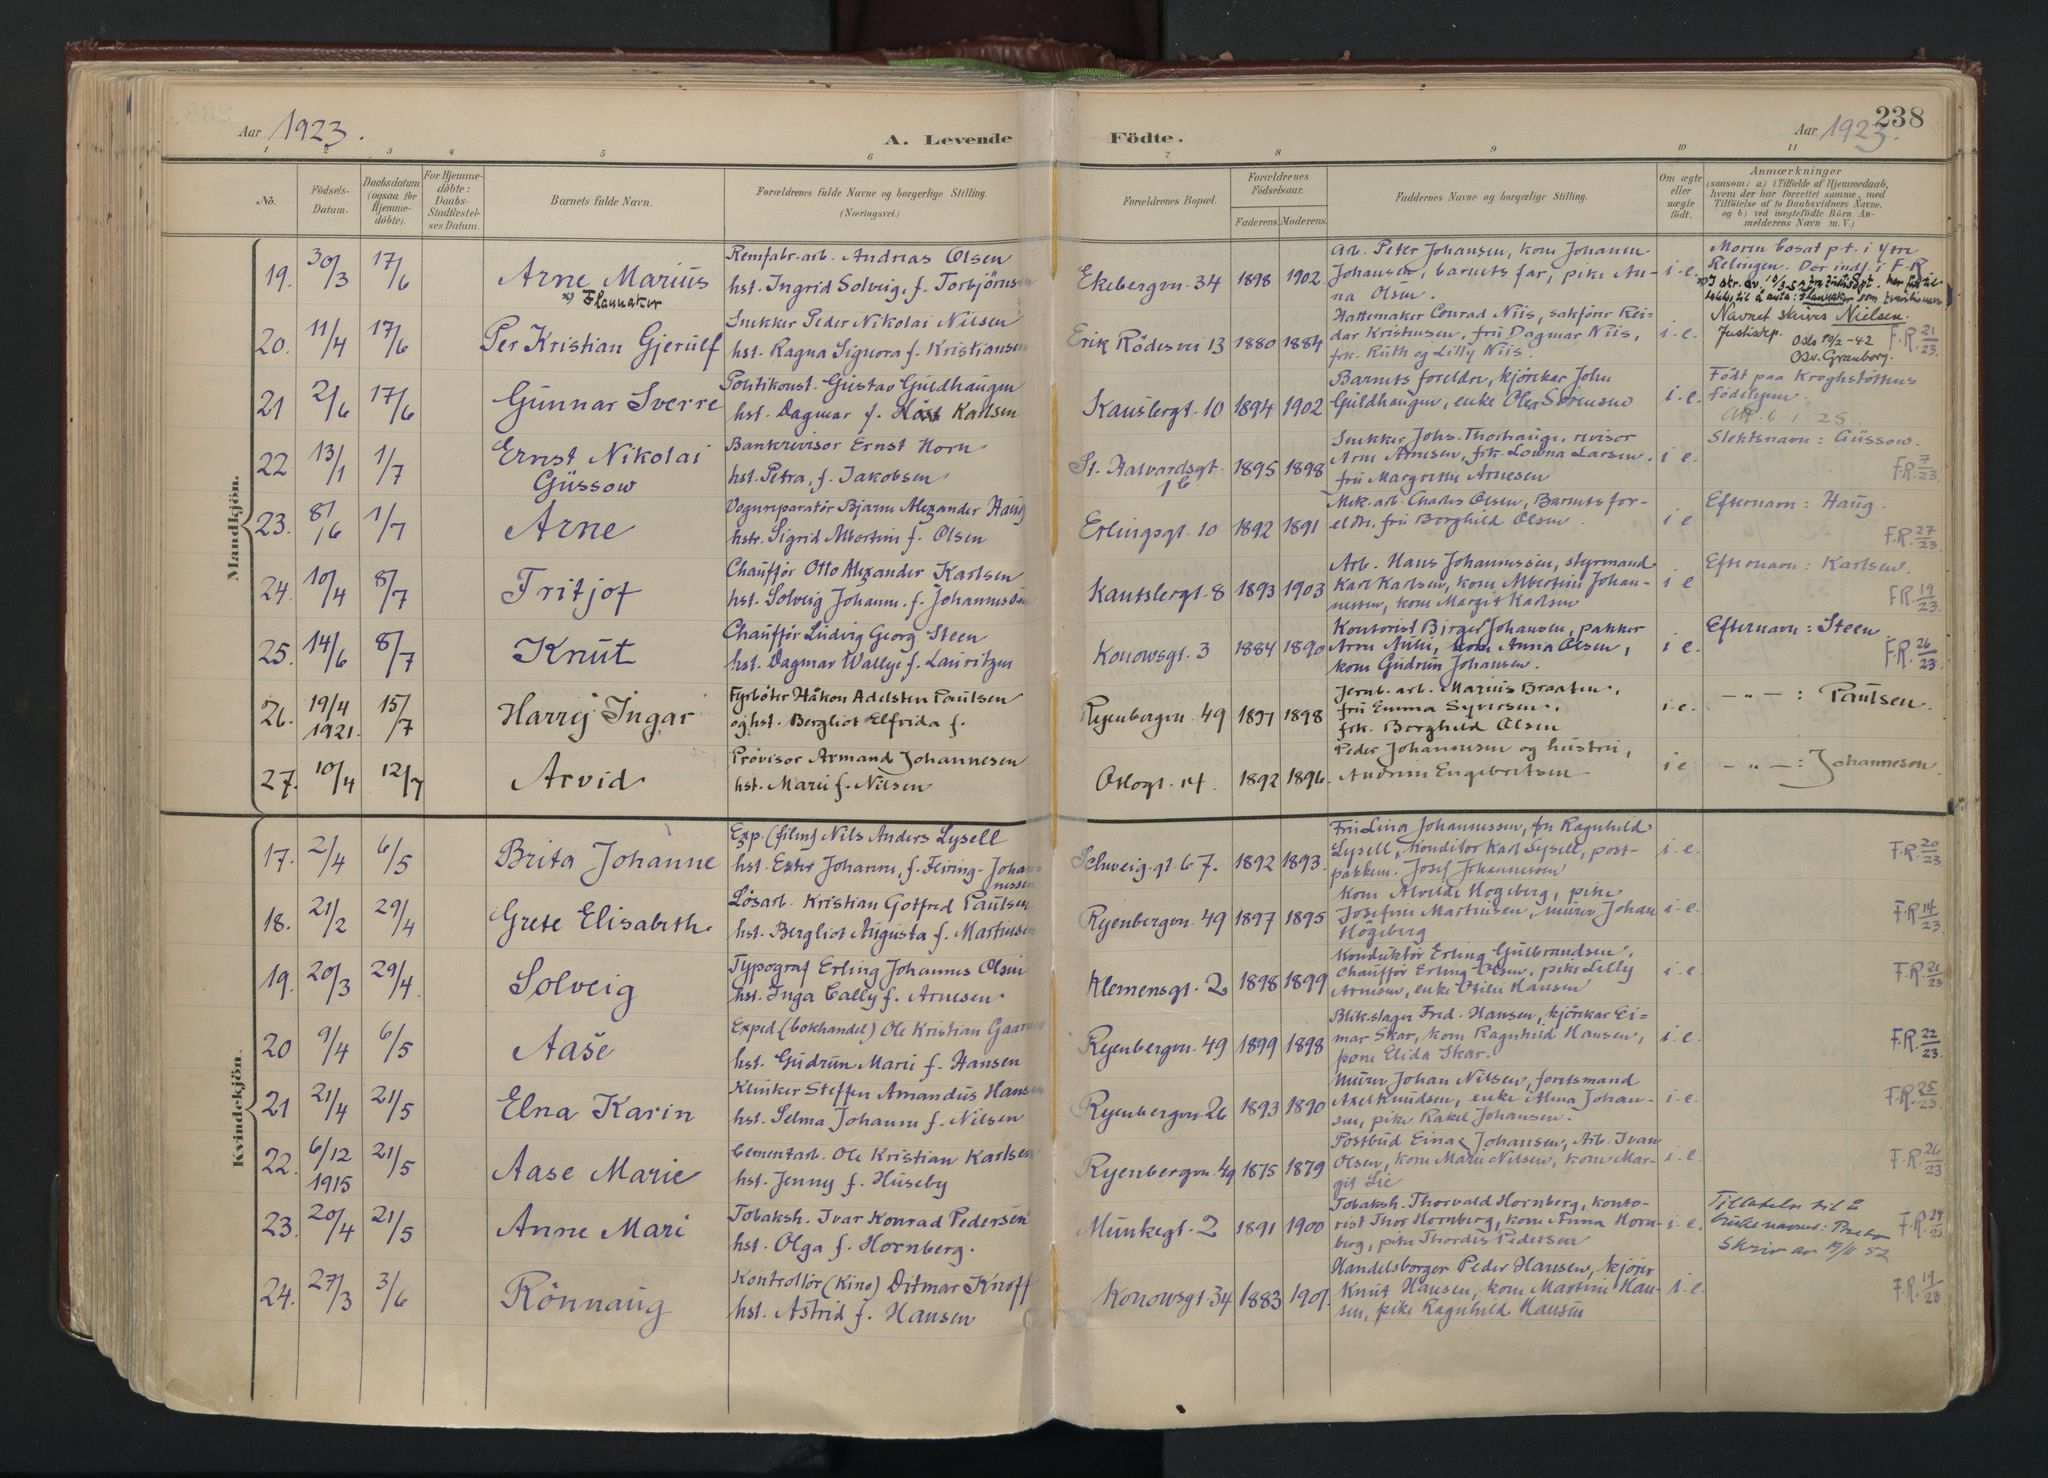 238
Aar 1923.
A. Levende
Födte.
Aar 1923.
1 2 3 4 5 6 7 8 9 10 11
No.
Födsels-Datum.
Daabsdatum (ogsaa for Hjemme-döbte).
For Hjemme-döbte: Daabs-Stadfæstel-ses Datum.
Barnets fulde Navn.
Forældrenes fulde Navne og borgerlige Stilling. (Næringsvei.)
Forældrenes Bopæl.
Forældrenes Födselsaar.
Faderens. Moderens.
Faddernes Navne og borgerlige Stilling.
Om ægte eller uægte födt.
Anmærkninger
(saasom: a) (Tilfælde af Hjemmedaab,
hvem der har forrettet samme, med
Tilföielse af to Daabsvidners Navne.
og b) ved uægtefödte Börn An-
melderens Navn m. V.)
Mandkjön.
19. 30/3 17/6 Arne Marius
x) Flannaker
Remfabr. arb. Andreas Olsen
hst. Ingrid Solveig, f. Torbjörnsen
Ekebergvn. 34 1898 1902
Arb. Peter Johansen, kone Johanne
Johansen, barnets far, pike An-
na Olsen.
i. e.
Moren bosat p.t. i ytre
Relingen. Der indf. i F.R.
20. 11/4 17/6 Per Kristian Gjerulf
Snekker Peder Nikolai Nilsen
hst. Ragna Signora f. Kristiansen
Erik Rödesvei 13 1880 1884
Hattemaker Conrad Niis, sakförer Rei-
dar Kristensen, frü Dagmar Niis,
frk. Ruth og Lilly Niis.
i. e.
Navnet skrives Nielsen.
Justisdep. Oslo 10/2-42
Osv. Granborg.
F.R. 21/23
21 2/6 17/6 Gunnar Sverre
Politikonst. Gustav Guldhaugen
hst. Dagmar f. Karlsen
Kanslergt. 10 1894 1902
Barnets foreldre, kjörekar John
Guldhaugen, enke Olea Sörensen
i. e.
Födt paa Kroghstöttens
födehjem.
6. 1. 25.
22 13/1 1/7 Ernst Nikolai
Güssow
Bankrevisor Ernst Horn
hst. Petra, f. Jakobsen
St. Halvardsgt.
1b 1895 1898
Snekker Johs. Thorhaug, revisor
Arne Arnesen, frk. Lovna Larsen.
frü Margrethe Arnesen
i e.
Slektsnavn: Güssow.
F.R. 7/23
23. 8/6 1/7 Arne
Vognreparatör Bjarne Alexander Haug
hstr. Sigrid Albertine f. Olsen
Erlingsgt. 10 1892 1891
Mek. arb. Charles Olsen, Barnets for-
eldre, frü Borghild Olsen.
i e
Efternavn: Haug.
F.R. 27/23
24. 10/4 8/7 Fritjof
Chaufför Otto Alexander Karlsen
hst. Solveig Johanne f. Johannessen
Kantslergt. 8 1893 1903
Arb. Hans Johannessen, styrmand
Karl Karlsen, kone Albertine Johan-
nessen, kone Margit Karlsen
i e
Efternavn: Karlsen.
F.R. 19/23
25. 14/6 8/7 Knut
Chauffør Ludvig Georg Steen
hst. Dagmar Wallye f. Lauritzen
Konowsgt. 3 1884 1890
Kontorist Birger Johansen, pakker
Arne Aulie, kone Anna Olsen,
kone Gudrun Johansen.
i e.
Efternavn: Steen
F.R. 26/23
26. 19/4 15/7 Harry Ingar
1921.
Fyrböter Håkon Adelsten Paulsen
og hst. Bergliot Elfrida f.
Ryenbergvn. 49 1897 1898
Jernb. arb. Marius Braaten,
frü Emma Syversen,
frk. Borghild Olsen
i. e.
— " — : Paulsen.
27. 10/4 12/7 Arvid
Provisor Armand Johannesen
hst. Marie f. Nilsen
Oslogt. 14. 1892 1896.
Peder Johannesen og hustru,
Andrine Engebretsen
i e
— " — : Johannesen.
Kvindekjön.
17. 2/4 6/5 Brita Johanne
Exp. (film) Nils Anders Lysell
hst. Ester Johanne, f. Feiring-Johan-
nessen
Schweig. gt. 67. 1892 1893.
Frü Lina Johannessen, frü Ragnhild
Lysell, konditor Karl Lysell, post-
pakkem. Josef Johannessen
i. e.
F.R. 20/23
18. 21/2 29/4 Grete Elisabeth.
Løsarb. Kristian Gotfred Paulsen
hst. Bergliot Augusta f. Martinsen
Ryenbergvn. 49 1897 1895
kone Alvilde Hogeberg, pike
Josefine Martinsen, mürer Johan
Hogeberg
i. e.
F.R. 14/23
19. 20/3 29/4. Solveig
Typograf Erling Johannes Olsen
hst. Inga Cally f. Arnesen.
Klemensgt. 2 1898 1899
Konduktör Erling Gulbrandsen,
Chauffør Erling Olsen, pike Lilly
Arnesen, enke Otilie Hansen
i. e.
F.R. 21/23
20 9/4 6/5 Aase
Exped (bokhandel) Ole Kristian Gaarder
hst. Gudrun Marie f. Hansen
Ryenbergvn. 49 1899 1898
Blikslager Fred. Hansen, kjörekar Ei-
nar Skar, kone Ragnhild Hansen,
kone Elida Skar.
i. e.
F.R. 22/23.
21 21/4 21/5 Elna Karin
Klinker Steffen Amandus Hansen
hst. Selma Johanne f. Nilsen
Ryenbergvn 26 1893 1890
Mürer Johan Nilsen, foretsmand
Axel Knudsen, enke Alma Johan-
sen, pike Rakel Johansen.
i. e.
F.R. 25/23.
22. 6/12 21/5 Aase Marie
1915
Cementarb. Ole Kristian Karlsen
hst. Jenny f. Huseby
Ryenbergvn. 49 1875 1879
Postbud Einar Johansen, Arb. Ivan
Olsen, kone Marie Nilsen, kone Mar-
git Lie
i. e.
F.R. 26/23
23. 20/4 21/5 Anne Mari
Tobaksh. Ivar Konrad Pedersen
hst. Olga f. Hornberg.
Munkegt. 2 1891 1900
Tobaksh. Thorvald Hornberg, konto-
rist Thor Hornberg, kone Anna Horn-
berg, pike Thordis Pedersen
i. e.
Tillatelse til å
bruke navnet:
Skriv av 19/11 52
F.R. 24/23
24. 27/3 3/6 Rönnaug
Kontrollör (Kino) Ditmar Knoff
hst. Astrid f. Hansen
Konowsgt. 34 1883 1901.
Handelsborger Peder Hansen, kjörer
Knut Hansen, kone Martine Han-
sen, pike Ragnhild Hansen
i. e.
F.R. 19/23